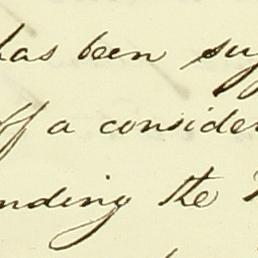 has been suf
off a consider
nding the